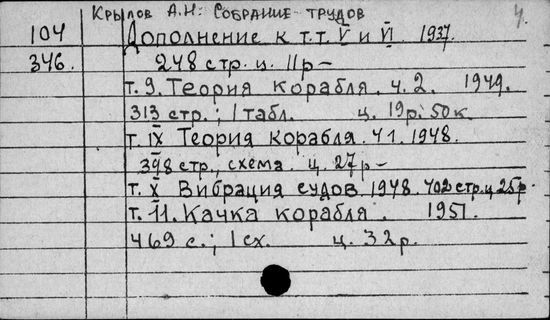 Крылов А.Н. Собрание трудов 4.
104 Дополнение к т.т. V и VI 1937.
346. 248 стр. ц. 11р-
т. 9. Теория корабля. ч. 2. 1949.
313 стр.; 1 табл. ц. 19р. 50к.
т. IX Теория корабля. ч 1. 1948.
398 стр., схема. ц. 27р-
т. X Вибрация судов. 1948. 402 стр. ц 25р.
т. 11. Качка корабля. 1951.
469 с.; 1 сх. ц. 32р.